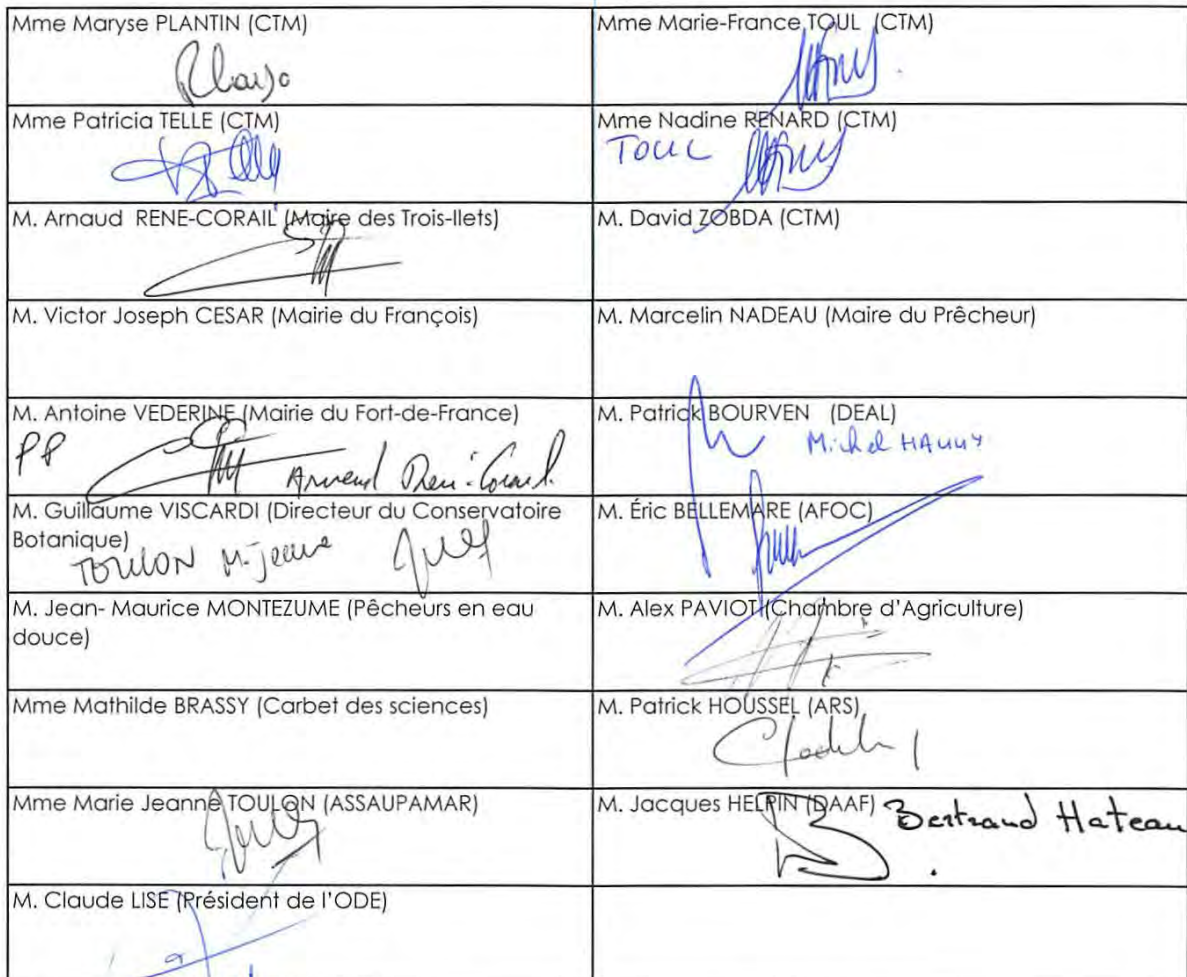 Mme Maryse PLANTIN (CTM)
Mme Marie-France TOUL (CTM)
Mme Patricia TELLE (CTM)
Mme Nadine RENARD (CTM)
TOUL
M. Arnaud RENE-CORAIL (Maire des Trois-Ilets)
M. David ZOBDA (CTM)
M. Victor Joseph CESAR (Mairie du François)
M. Marcelin NADEAU (Maire du Prêcheur)
M. Antoine VEDERINE (Mairie du Fort-de-France)
PP
M. Patrick BOURVEN (DEAL)
Michel
M. Guillaume VISCARDI (Directeur du Conservatoire
Botanique)
TOULON M-Jeanne
M. Éric BELLEMARE (AFOC)
M. Jean- Maurice MONTEZUME (Pêcheurs en eau
douce)
M. Alex PAVIOT (Chambre d'Agriculture)
Mme Mathilde BRASSY (Carbet des sciences)
M. Patrick HOUSSEL (ARS)
Mme Marie Jeanne TOULON (ASSAUPAMAR)
M. Jacques HELPIN (DAAF)
Bertrand Hateau
M. Claude LISE (Président de l'ODE)